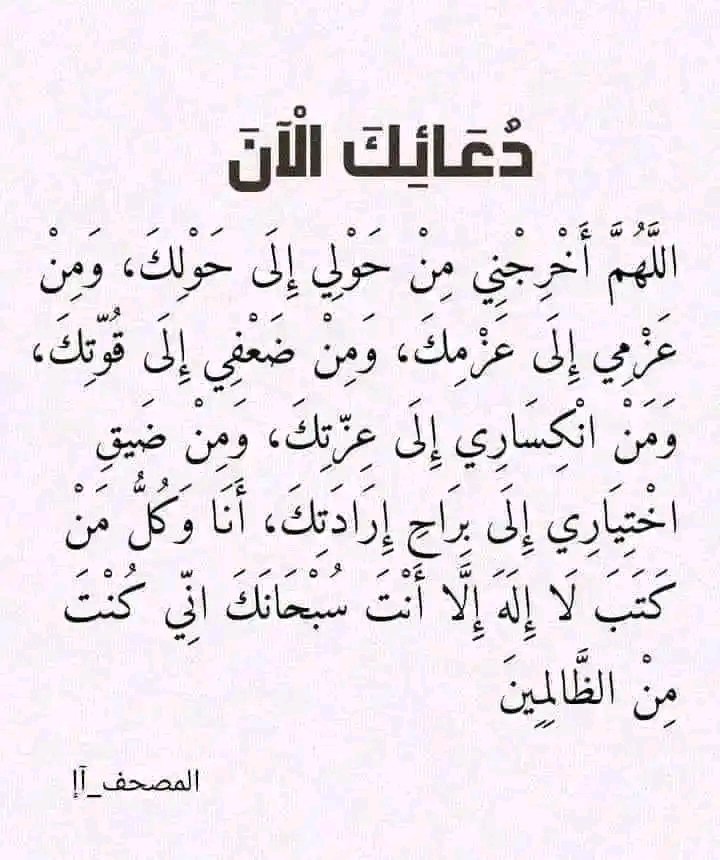 دُعَائِكَ الْآنَ
اللَّهُمَّ أَخْرِجْنِي مِنْ حَوْلِي إِلَى حَوْلِكَ، وَمِنْ
عَزْمِي إِلَى عَزْمِكَ، وَمِنْ ضَعْفِي إِلَى قُوَّتِكَ،
وَمَنْ انْكِسَارِي إِلَى عِزَّتِكَ، وَمِنْ ضَيقِ
اخْتِيَارِي إِلَى بِرَاحِ إِرَادَتِكَ، أَنَا وَكُلُّ مَنْ
كَتَبَ لَا إِلَهَ إِلَّا أَنْتَ سُبْحَانَكَ انِّي كُنْتَ
مِنْ الظَّالِمِينَ
المصحف_آإ